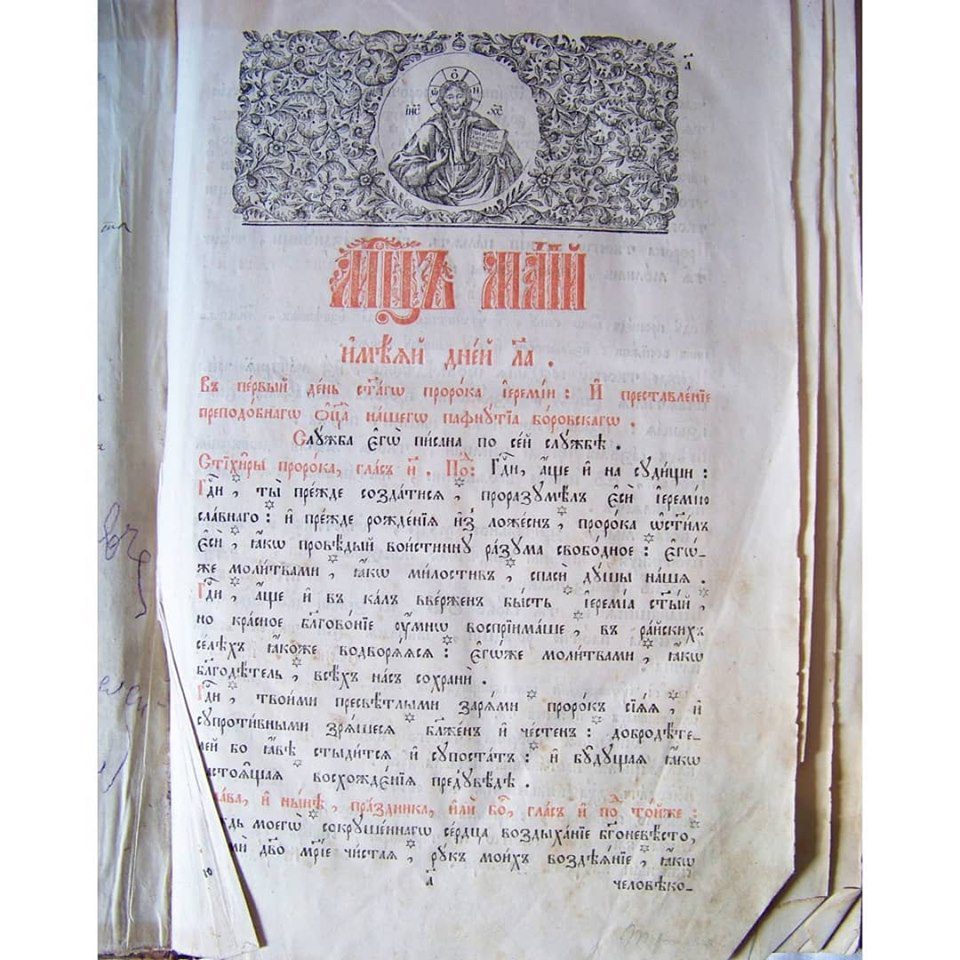 а҃
І҆И҃С Х҃С
Мц҃ъ маі́й
и҆мѣ́ѧй дне́й л҃а .
Въ пе́рвый де́нь ст҃а́гѡ проро́ка і҆еремі́и : И҆ преставле́нїе
преподо́бнагѡ ѻ҆ц҃а̀ на́шегѡ пафну́тїа бо́ровскагѡ .
Слꙋ́жба є҆гѡ̀ пи́сана по се́й слꙋ́жбѣ .
Стїхи́ры проро́ка, гла́съ и҃ . По́д : Гд҇и , а́ще и҆ на сꙋди́щи :
Гд҇и , ты̀ пре́жде созда́тисѧ , проразꙋмѣ́лъ є҆сѝ і҆еремі́ю
сла́внаго : и҆ пре́жде рожде́нїѧ и҆з̾ ложе́снъ , проро́ка ѡ҆ст҃и́лъ
є҆сѝ , ꙗ҆́кѡ провѣ́дый вои́стиннꙋ ра́зꙋма свобо́дное : є҆гѡ́-
же моли́твами , ꙗ҆́кѡ ми́лостивъ , спасѝ дꙋ́шы на́шѧ .
Гд҇и , а́ще и҆ в̾ ка́лъ вве́рженъ бы́сть і҆еремі́а ст҃ы́й ,
но кра́сное бл҃гово́нїе ᲂу҆́мнѡ воспрїима́ше , въ ра́йскихъ
се́лѣхъ ꙗ҆́коже водворѧ́ѧсѧ : є҆гѡ́же моли́твами , ꙗ҆́кѡ
бл҃годѣ́тель , всѣ́хъ на́съ сохранѝ .
Гд҇и , твои́ми пресвѣ́тлыми зарѧ́ми проро́къ сїѧ́ѧ , и҆
сꙋпроти́вными зрѧ́щесѧ бл҃же́нъ и҆ че́стенъ : добродѣ́те-
лей бо ꙗ҆́вѣ стыди́тсѧ и҆ сꙋпоста́тъ : и҆ бꙋ́дꙋщаѧ ꙗ҆́кѡ
настоѧ́щаѧ восхожде́нїѧ предꙋвѣ́дѣ .
Сла́ва, и҆ ны́нѣ, пра́здника, и҆лѝ бо҃, гла́съ и҃ по́д то́йже :
сокрꙋше́ннагѡ се́рдца воздыха́нїе бг҃оневѣ́сто,
дв҃о мр҃і́е чи́стаѧ , рꙋ́къ мои́хъ воздѣ́ѧнїе , ꙗ҆́кѡ
а҃ человѣко-